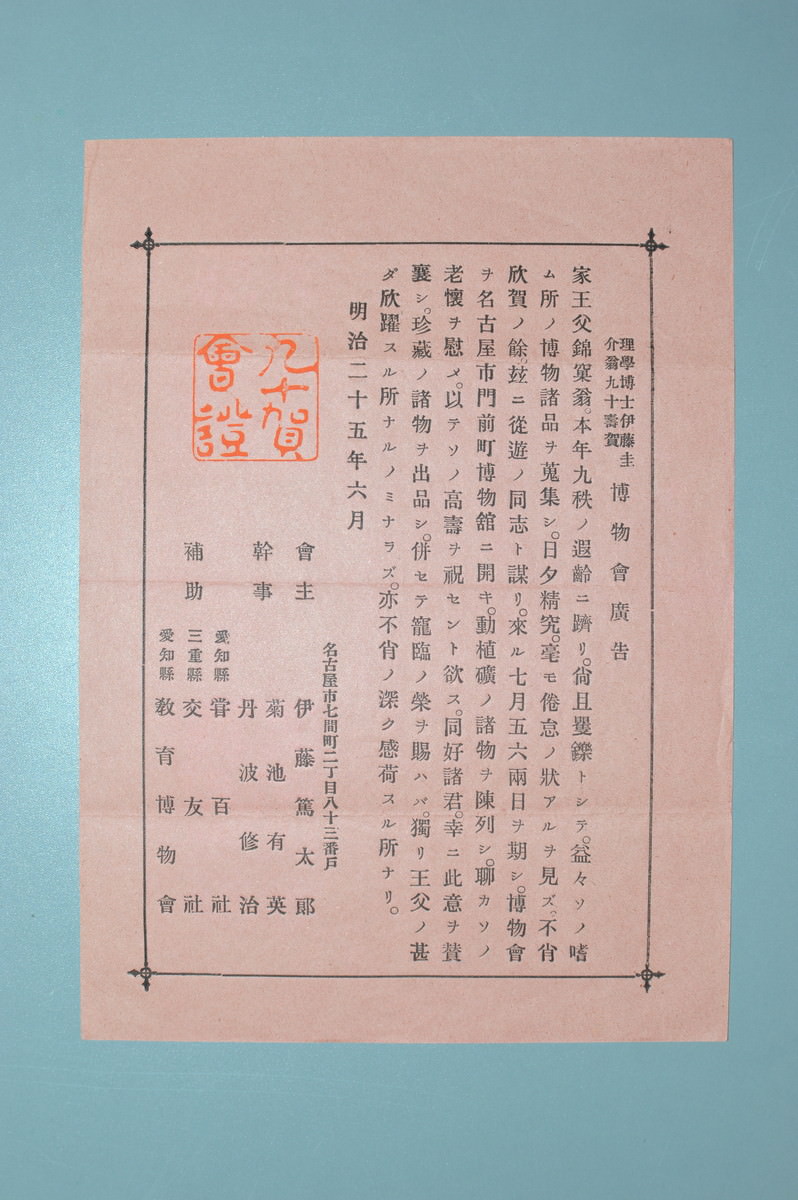 理學博士伊藤圭
介翁九十壽賀
博物會廣告
家王父錦窠翁。本年九秩ノ遐齡ニ躋リ。尙且矍鑠トシテ。益々ソノ嗜
ム所ノ博物諸品ヲ蒐集シ。日夕精究。毫モ倦怠ノ狀アルヲ見ズ。不肖
欣賀ノ餘。玆ニ從遊ノ同志ト謀リ。來ル七月五六兩日ヲ期シ。博物會
ヲ名古屋市門前町博物舘ニ開キ。動植礦ノ諸物ヲ陳列シ。聊カソノ
老懷ヲ慰メ。以テソノ高壽ヲ祝セント欲ス。同好諸君。幸ニ此意ヲ賛
襄シ。珍藏ノ諸物ヲ出品シ。併セテ寵臨ノ榮ヲ賜ハバ。獨リ王父ノ甚
ダ欣躍スル所ナルノミナラズ。亦不肖ノ深ク感荷スル所ナリ。
明治二十五年六月
名古屋市七間町二丁目八十三番戶
會主 伊藤篤太郞
幹事 菊池有英
丹波修治
補助 愛知縣 甞百社
三重縣 交友社
愛知縣 敎育博物會
九十賀
會證